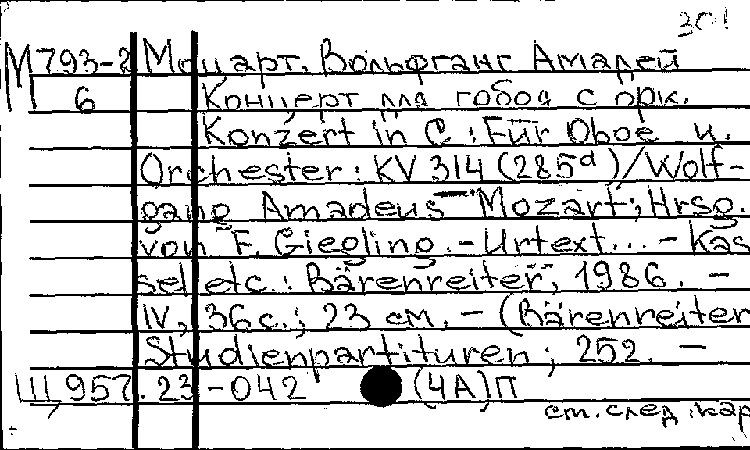 301
М793-2 Моцарт, Вольфганг Амадей
6 Концерт для гобоя с орк.
Konzert in C : Für Oboe u.
Orchester : KV 314 (285d) / Wolf-
gang Amadeus Mozart; Hrsg.
von F. Giegling. - Urtext... - Kas
sel etc. : Bärenreiter, 1986. -
IV, 36 с.; 23 см. - (Bärenreiter
Studienpartituren ; 252. -
Ш 957.23-042 (4А)П
ст. след. кар